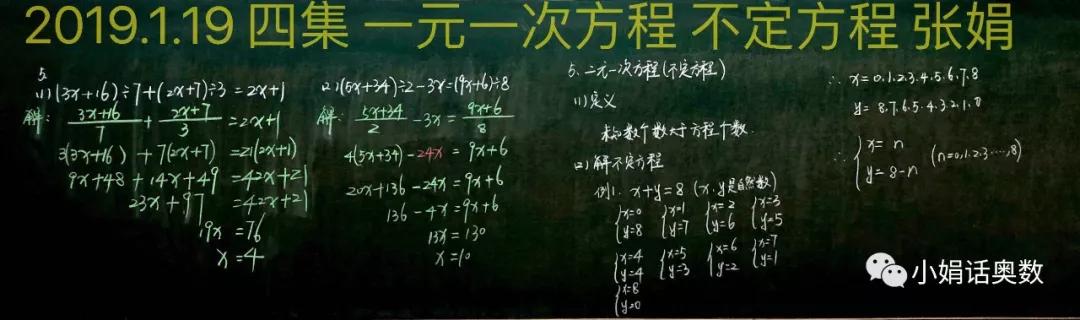 2019.1.19 四集 一元一次方程 不定方程 张娟
5.
(1) (3x+16)÷7+(2x+7)÷3=2x+1
解: (3x+16)/7 + (2x+7)/3 = 2x+1
3(3x+16) + 7(2x+7) = 21(2x+1)
9x+48+14x+49 = 42x+21
23x+97 = 42x+21
19x = 76
x = 4
(2) (5x+34)÷2-3x=(9x+6)÷8
解: (5x+34)/2 - 3x = (9x+6)/8
4(5x+34)-24x = 9x+6
20x+136-24x = 9x+6
136-4x = 9x+6
13x = 130
x = 10
5、二元一次方程(不定方程)
(1) 定义
未知数个数大于方程个数.
(2) 解不定方程
例1. x+y=8 (x.y是自然数)
{x=0 {x=1 {x=2 {x=3
{y=8 {y=7 {y=6 {y=5
{x=4 {x=5 {x=6 {x=7
{y=4 {y=3 {y=2 {y=1
{x=8
{y=0
∴ x=0.1.2.3.4.5.6.7.8
y=8.7.6.5.4.3.2.1.0
∴ {x=n
{y=8-n (n=0.1.2.3…,8)
小娟话奥数